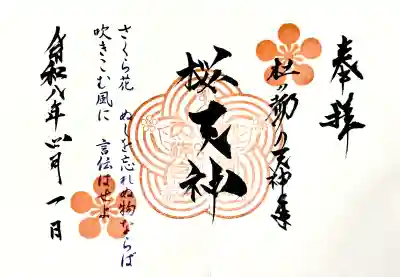 奉拝
桜天神
さくら花 ぬしを忘れぬ物ならば
吹きこむ風に 言伝はせよ
令和八年四月一日